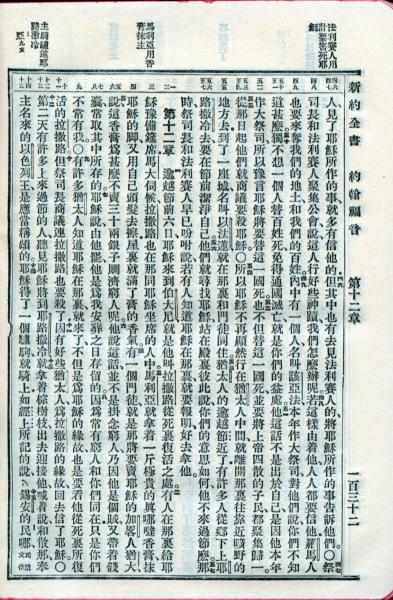 新約全書 約翰福音 第十二章 一百三十二
法利賽人用
計要害死耶
穌
人見了耶穌所作的事就多有信他的但其中也有去見法利賽人的將耶穌所作的事告訴他們○祭
司長和法利賽人聚集公會說這人行好些神蹟我們怎麼辦呢若這樣由着他人人都要信他羅馬人
也要來奪我們的地土和我們的百姓內中有一個人名叫該亞法本年作大祭司對他們說你們不知
道甚麼獨不想一個人替百姓死免得通國滅亡就是你們的益處他這話不是出於自己是因他本年
作大祭司所以豫言耶穌將要替這一國死也不但替這一國死並要將上帝四散的子民都聚集歸一
從那日起他們就商議要殺耶穌○所以耶穌不再顯然行在猶太人中間就離開那裏往靠近曠野的
地方去到了一座城名叫以法蓮就在那裏和門徒同住猶太人的逾越節近了有許多人從鄉下上耶
路撒冷去要在節前潔淨自己他們就尋找耶穌站在殿裏彼此說你們的意思如何他不來過節麼那
時祭司長和法利賽人早已吩咐說若有人知道耶穌在那裏就要報明好去拿他
馬利亞用香
膏抹主
第十二章 逾越節前六日耶穌來到伯大尼就是他叫拉撒路從死裏復活之處有人在那裏給耶
穌豫備筵席馬大伺候拉撒路也在那同耶穌坐席的人中馬利亞就拿着一斤極貴的眞哪噠香膏抹
耶穌的脚又用自己頭髮去擦屋裏就滿了膏的香氣有一個門徒就是那將要賣耶穌的加畧人猶大
說這香膏爲甚麼不賣三十兩銀子賙濟窮人呢他說這話並不是掛念窮人乃因他是個賊又帶着錢
囊常取其中所存的耶穌說由他罷他是爲我安葬之日存留的因爲常有窮人和你們同在只是你們
不常有我○有許多猶太人知道耶穌在那裏就來了不但是爲耶穌的緣故也是要看他從死裏所復
活的拉撒路但祭司長商議連拉撒路也要殺了因有好些猶太人爲拉撒路的緣故回去信了耶穌○
主騎驢進耶
路撒冷
第二天有許多上來過節的人聽見耶穌將到耶路撒冷就拿着棕樹枝出去迎接他喊着說和散那奉
主名來的以色列王是應當稱頌的耶穌得了一個驢駒就騎上如經上所記的說錫安的民哪